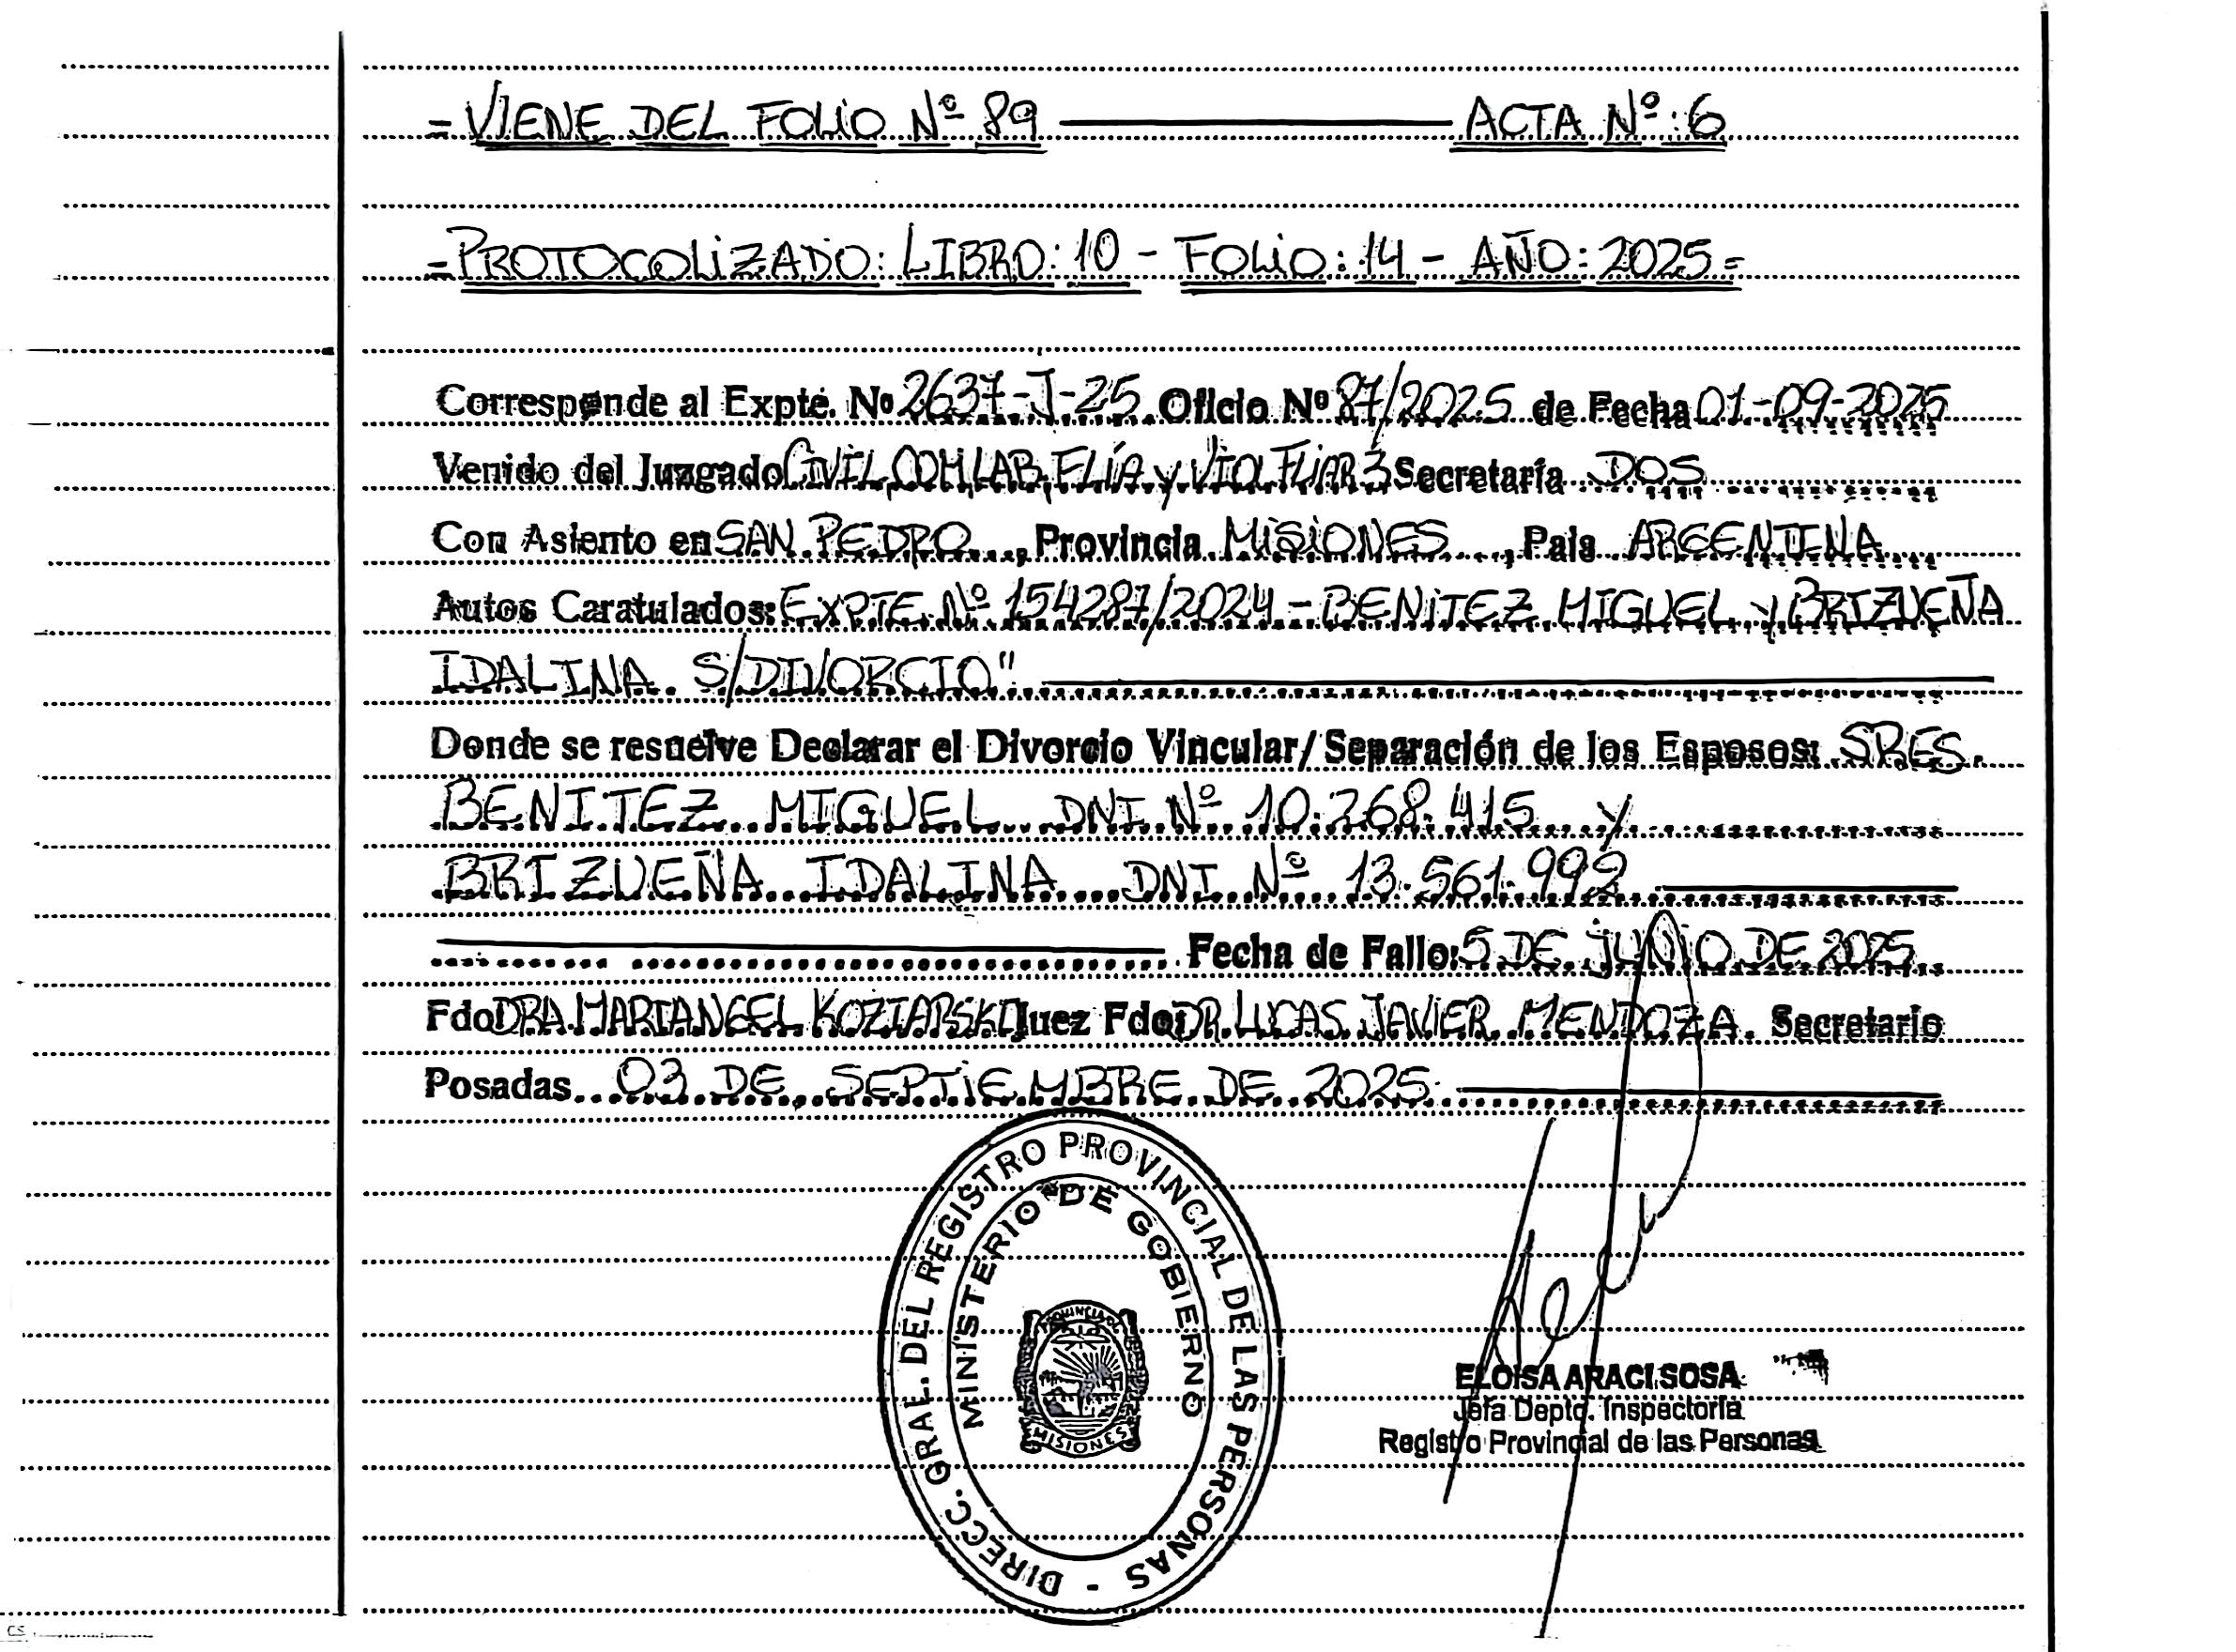 =VIENE DEL FOLIO Nº 89 ACTA Nº:6
=PROTOCOLIZADO: LIBRO: 10 - FOLIO: 14 - AÑO: 2025=
Corresponde al Expte. Nº 2637-J-25 Oficio Nº 87/2025 de Fecha 01-09-2025
Venido del Juzgado CIVIL, COM, LAB, FLÍA y VIO. FLIAR 3 Secretaría DOS
Con Asiento en SAN PEDRO, Provincia MISIONES, Pais ARGENTINA
Autos Caratulados: EXPTE. Nº 154287/2024 - BENITEZ MIGUEL y BRIZUEÑA
IDALINA S/DIVORCIO"
Donde se resuelve Declarar el Divorcio Vincular/ Separación de los Esposos: SRES.
BENITEZ MIGUEL DNI Nº 10.268.415 y
BRIZUEÑA IDALINA DNI Nº 13.561.992
Fecha de Fallo: 5 DE JUNIO DE 2025
Fdo DRA. MARIANGEL KOZIARSKI Juez Fdo: DR. LUCAS JAVIER MENDOZA. Secretario
Posadas 03 DE SEPTIEMBRE DE 2025
DIRECC. GRAL. DEL REGISTRO PROVINCIAL DE LAS PERSONAS -
MINISTERIO DE GOBIERNO
PROVINCIA DE
MISIONES
ELOISA ARACI SOSA
Jefa Depto. Inspectoría
Registro Provincial de las Personas